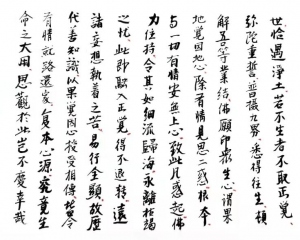 世恰過淨土若不生者不取正覺
弥陀重誓普攝九界悉得往生頓
解吾等業結佛願印眾生心謂果
地覺因地心除有情見思二惑根本
与一切有情安無上心致此凡惑起佛
力住持令其如細流歸海永離枯竭
之忧此即默正覺得不退转遠
諸妄想执着之苦易行全顯故歷
代善知識以果覺因心授受相傳普令
有情就路還家復本心源究竟生
命之大用思觀於此岂不慶幸哉